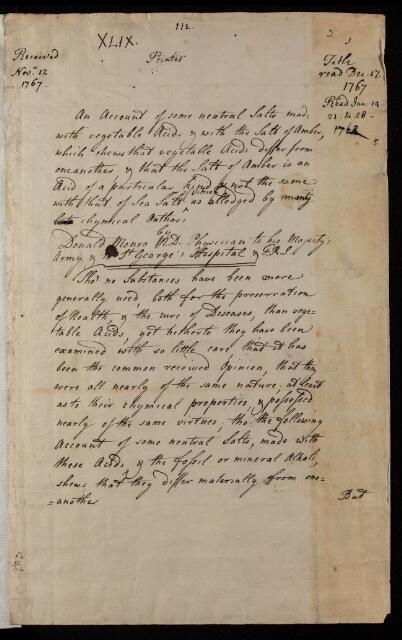 112.
XLIX.
2
Received
Novr. 12
1767.
Printed
Title
read Dec. 17.
1767
Read Jan. 14.
21. & 28.
1768
An Account of some neutral Salts made
with vegetable Acids & with the Salt of Amber,
which shews that vegetable Acids differ from
one another & that the Salt of Amber is an
Acid of a particular kind & not the same
with that of Sea Salt as alledged by many
chymical Authors
by
Donald Monro M.D. Physician to his Majesty's
Army & to St George's Hospital & F.R.S.
Tho' no Substances have been more
generally used, both for the preservation
of Health, & the cure of Diseases, than vege-
table Acids, yet hetherto they have been
examined with so little care, that it has
been the common received Opinion, that they
were all nearly of the same nature, at least
as to their chymical properties, & possessed
nearly of the same virtues; tho' the following
Account of some neutral Salts, made with
these Acids, & the fossil or mineral Alkali,
shews that they differ materially from one=
=another
But